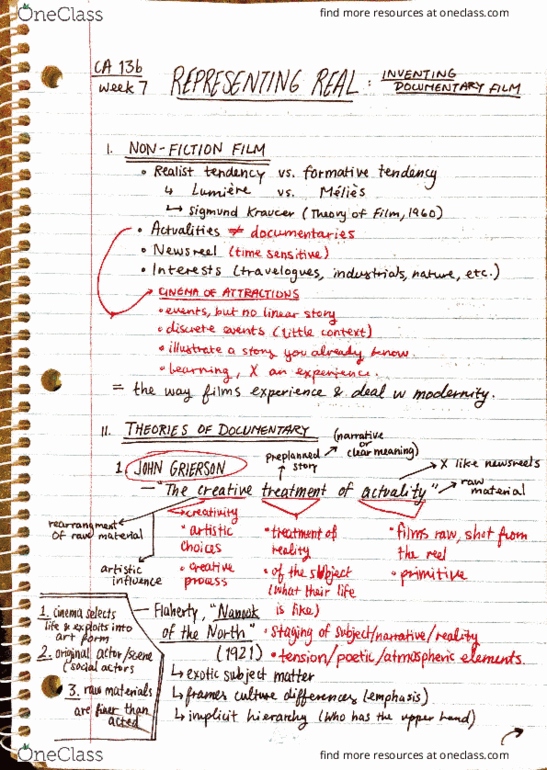 OneClass
find more resources at oneclass.com
CA 13b
Week 7
REPRESENTING REAL : INVENTING
DOCUMENTARY FILM
I. NON-FICTION FILM
• Realist tendency vs. formative tendency
↳ Lumière vs. Méliès
↳ Sigmund Kraucer (Theory of Film, 1960)
• Actualities ≠ documentaries
• Newsreel (time sensitive)
• Interests (travelogues, industrials, nature, etc.)
→ CINEMA OF ATTRACTIONS
• events, but no linear story
• discrete events (little context)
• illustrate a story you already know.
• Learning, X an experience.
= the way films experience & deal w modernity.
II. THEORIES OF DOCUMENTARY
1. JOHN GRIERSON
preplanned story
(narrative or clear meaning)
X like newsreels
— "The creative treatment of actuality"
raw material
rearrangment of raw material
artistic influence
creativity
• artistic choices
• creative process
• treatment of reality
• of the subject (what their life is like)
• films raw, shot from the reel
• primitive
1. cinema selects life & exploits into art form
2. original actor/scene (social actors
3. raw materials are finer than acted
— Flaherty, "Nanook of the North" (1921)
• staging of subject/narrative/reality
• tension/poetic/atmospheric elements.
↳ exotic subject matter
↳ frames culture differences (emphasis)
↳ implicit hierarchy (who has the upper hand)
OneClass
find more resources at oneclass.com